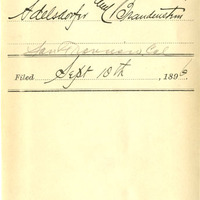 Adelsdorfer and Brandenstein
San Francisco, Cal
Filed Sept 10th, 189